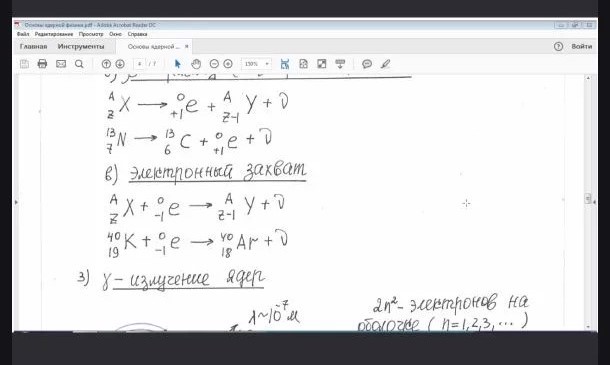 Основы ядерной физики.pdf - Adobe Acrobat Reader DC
Файл Редактирование Просмотр Окно Справка
Главная Инструменты Основы ядерной ... × Войти
4 / 7 150%
A Z X → 0 +1 e + A Z-1 Y + ν
13 7 N → 13 6 C + 0 +1 e + ν
в) электронный захват
A Z X + 0 -1 e → A Z-1 Y + ν
40 19 K + 0 -1 e → 40 18 Ar + ν
3) γ - излучение ядер
λ~10⁻⁷м
2n² - электронов на
оболочке (n=1,2,3,...)